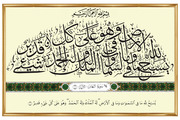 بسم الله الرحمن الرحيم
يسبح لله ما في السموات وما في الأرض له الملك وله الحمد وهو على كل شيء قدير
يُسَبِّحُ لِلَّهِ مَا فِي السَّمَوَاتِ وَمَا فِي الْأَرْضِ لَهُ الْمُلْكُ وَلَهُ الْحَمْدُ وَهُوَ عَلَى كُلِّ شَيْءٍ قَدِيرٌ